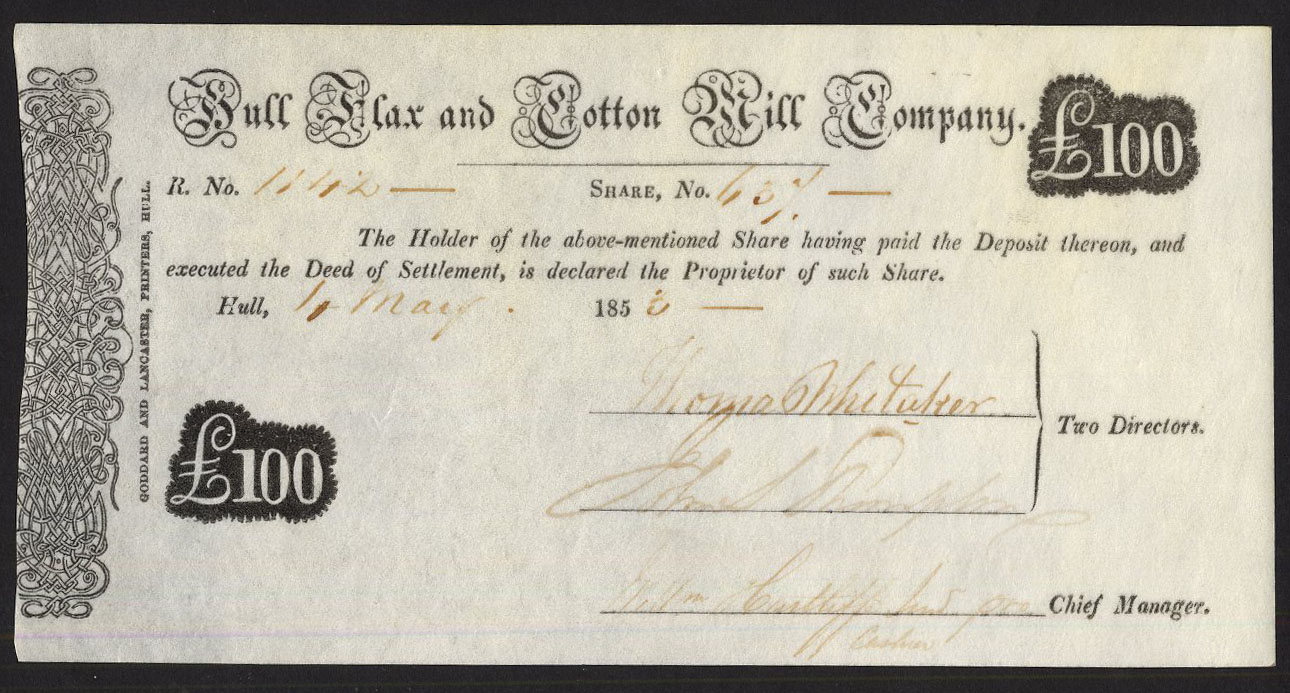 Hull Flax and Cotton Mill Company.
£100
R. No. 1142 — Share, No. 637. —
The Holder of the above-mentioned Share having paid the Deposit thereon, and
executed the Deed of Settlement, is declared the Proprietor of such Share.
Hull, May. 185
Thomas Whitaker
Two Directors.
John Simpson
£100
Chief Manager.
Cashier
GODDARD AND LANCASTER, PRINTERS, HULL.